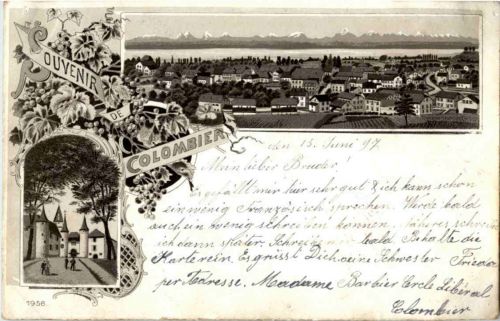 SOUVENIR
DE
COLOMBIER
den 15. Juni 97.
Mein lieber Bruder!
Es gefällt mir hier sehr gut & ich kann schon
ein wenig Französisch sprechen. Werde bald
auch ein wenig schreiben können. Näheres schreibe
ich dann später. Schreib bald. Behalte die
Karte rein. Es grüsst Dich deine Schwester Frieda
per Adresse. Madame Barbier Cercle Libéral
Colombier
1956